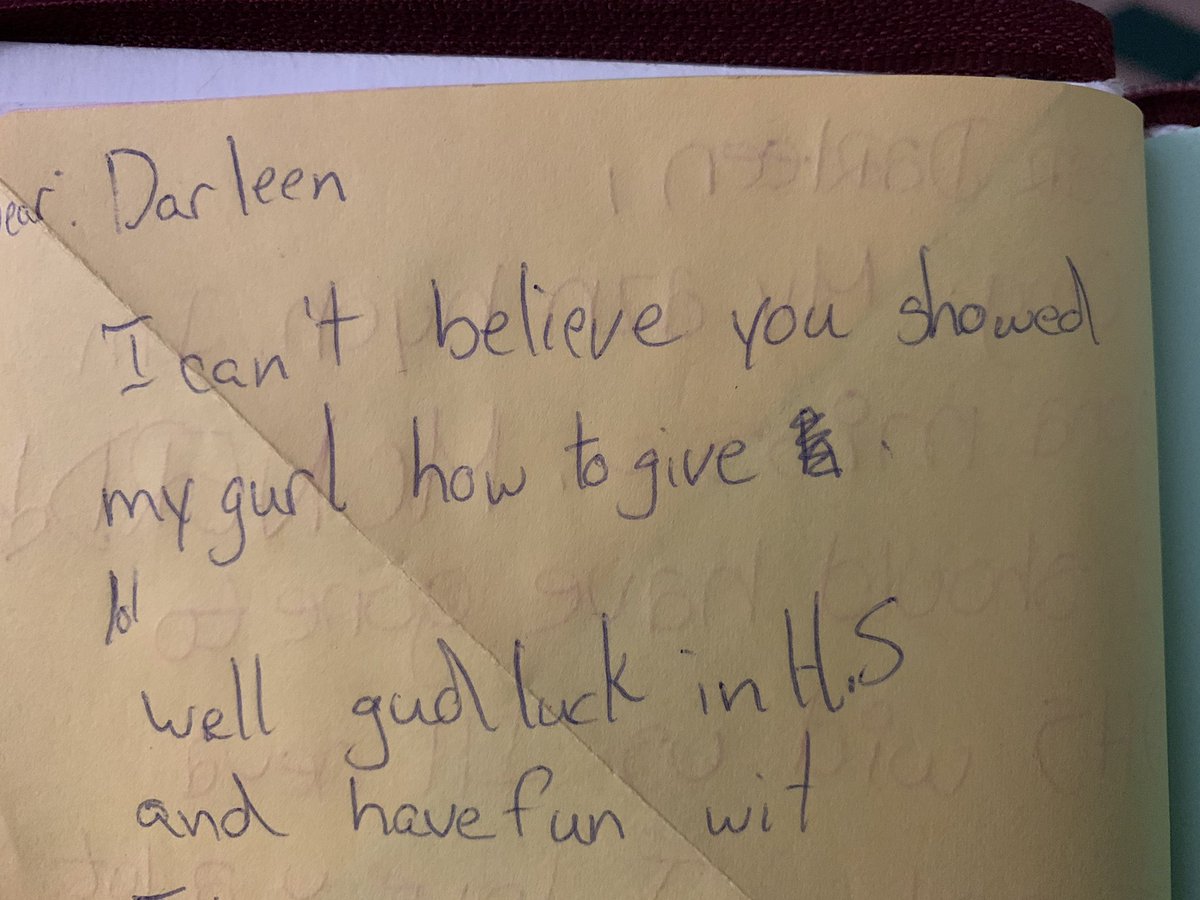 Dear: Darleen
I can't believe you showed
my gurl how to give
lol
well gud luck in H.S
and have fun wit